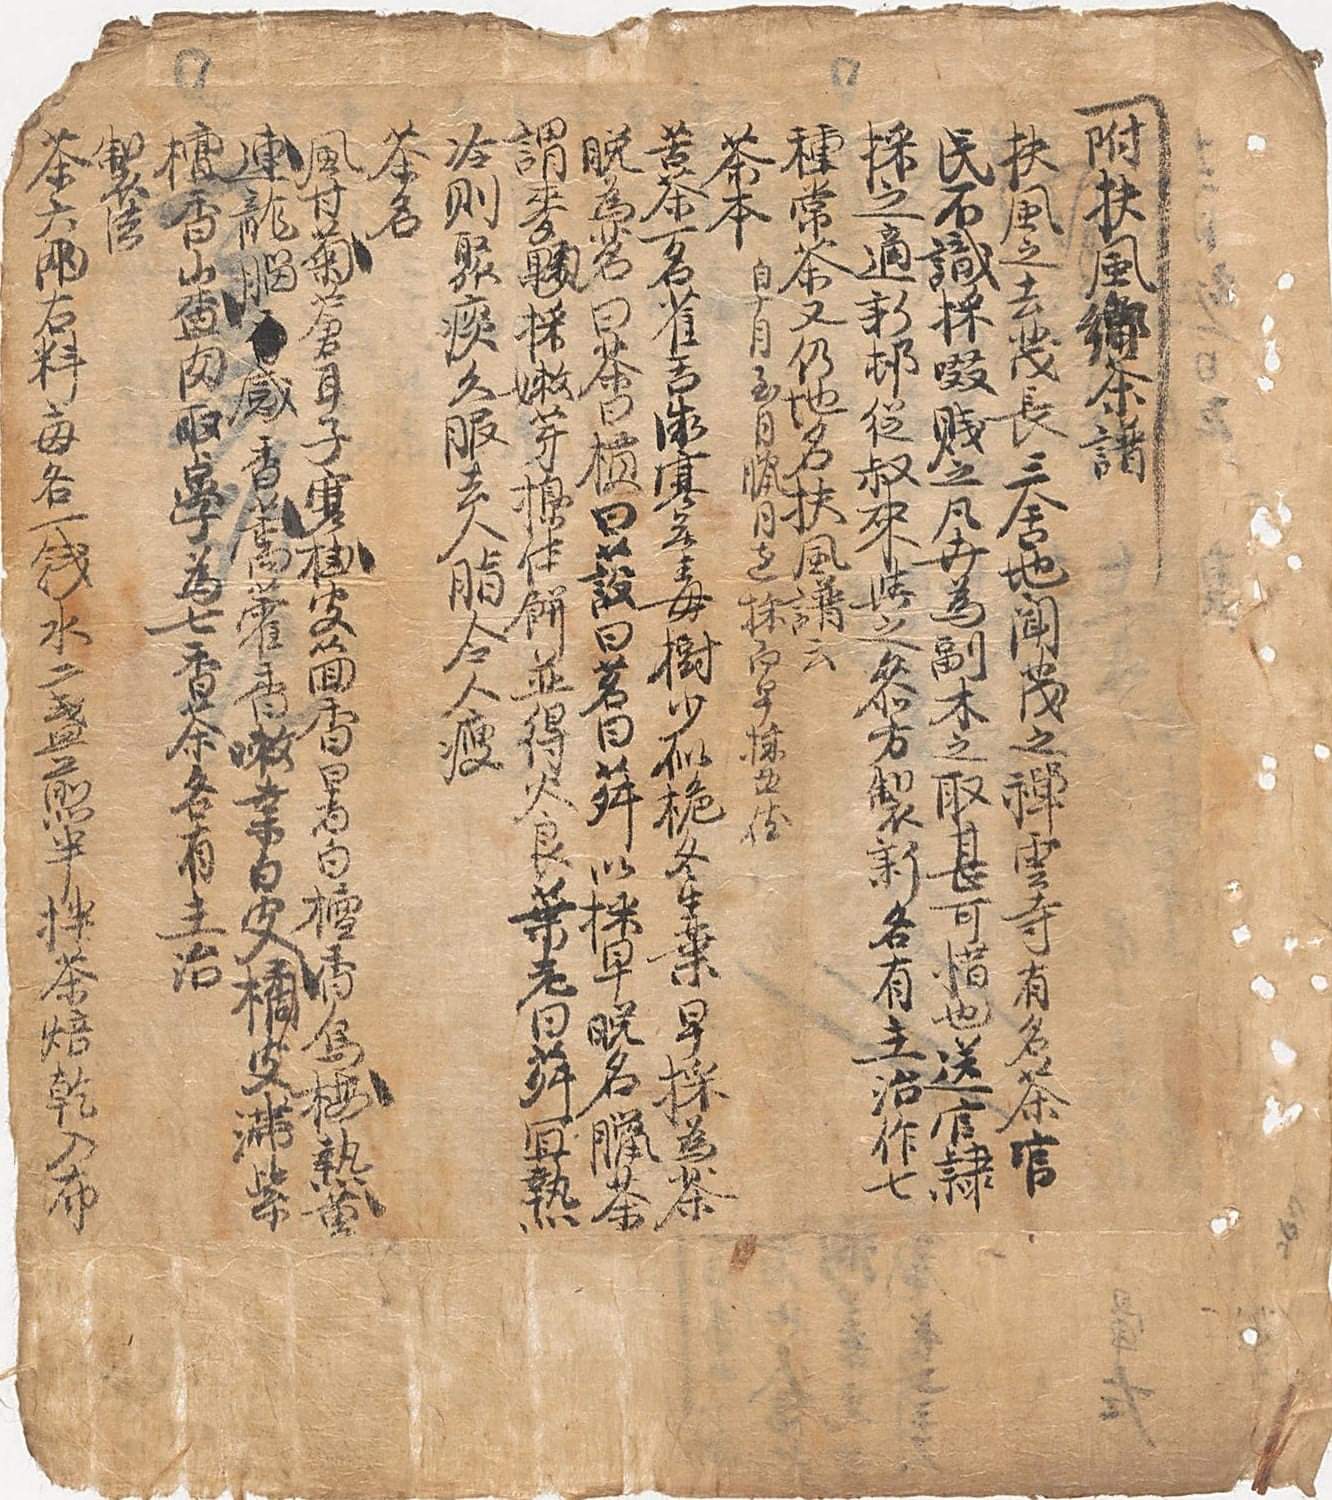 附扶風鄕茶譜
扶風之去茂長三舍地聞茂之禪雲寺有名茶官
民不識採啜賤之凡卉為副木之取甚可惜也送官隷
採之適新邨從叔來與之參方製新各有主治作七
種常茶又仍地名扶風譜云
茶本
自十月至月臘月連採而早採為佳
苦茶一名雀舌微寒無毒樹少似梔冬生葉早採為茶
晩為茗曰茶曰檟曰蔎曰茗曰荈以採早晩名臘茶
謂麥顆採嫩芽擣作餠並得火良葉老曰荈宜熱
冷則聚痰久服去人脂令人瘦
茶名
風甘菊蒼耳子寒桂皮茴香暑白檀香烏梅熱黃
連龍腦感香薷藿香嗽桑白皮橘皮滯紫
檀香山査肉取點字為七香茶各有主治
製法
茶六兩右料每各一錢水二盞煎半拌茶焙乾入布